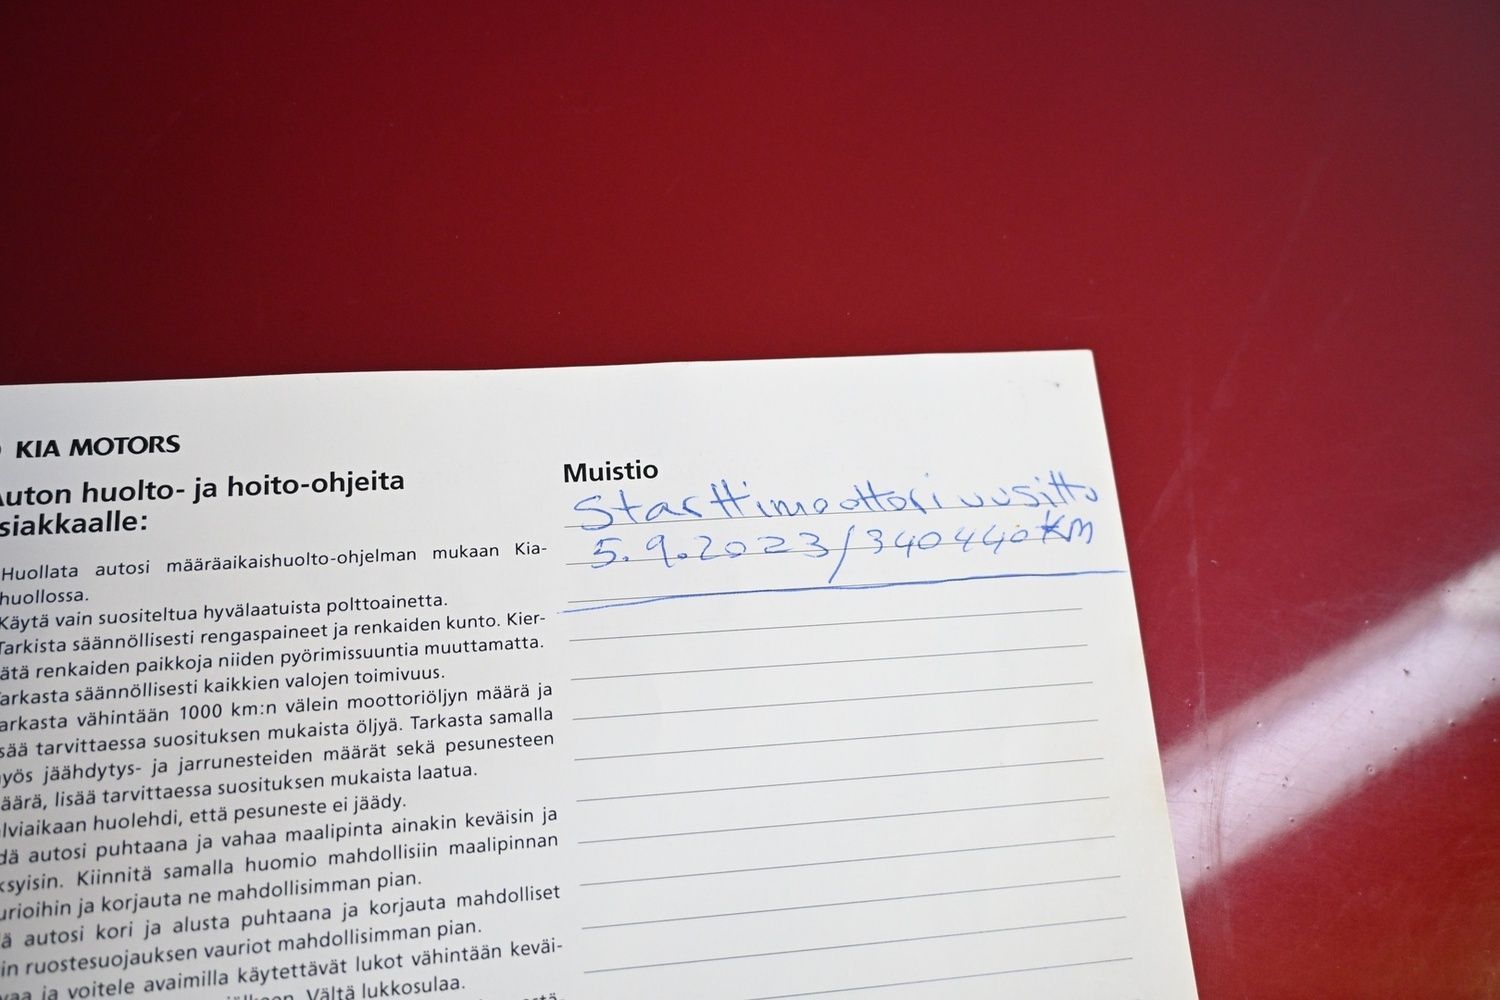 KIA MOTORS
Auton huolto- ja hoito-ohjeita
siakkaalle:
Huollata autosi määräaikaishuolto-ohjelman mukaan Kia-
huollossa.
Käytä vain suositeltua hyvälaatuista polttoainetta.
Tarkista säännöllisesti rengaspaineet ja renkaiden kunto. Kier-
ätä renkaiden paikkoja niiden pyörimissuuntia muuttamatta.
arkasta säännöllisesti kaikkien valojen toimivuus.
arkasta vähintään 1000 km:n välein moottoriöljyn määrä ja
sää tarvittaessa suosituksen mukaista öljyä. Tarkasta samalla
yös jäähdytys- ja jarrunesteiden määrät sekä pesunesteen
äärä, lisää tarvittaessa suosituksen mukaista laatua.
lviaikaan huolehdi, että pesuneste ei jäädy.
dä autosi puhtaana ja vahaa maalipinta ainakin keväisin ja
ksyisin. Kiinnitä samalla huomio mahdollisiin maalipinnan
urioihin ja korjauta ne mahdollisimman pian.
ä autosi kori ja alusta puhtaana ja korjauta mahdolliset
in ruostesuojauksen vauriot mahdollisimman pian.
vaa ja voitele avaimilla käytettävät lukot vähintään keväi-
Vältä lukkosulaa.
Muistio
Starttimoottori uusittu
5.9.2023/340440km